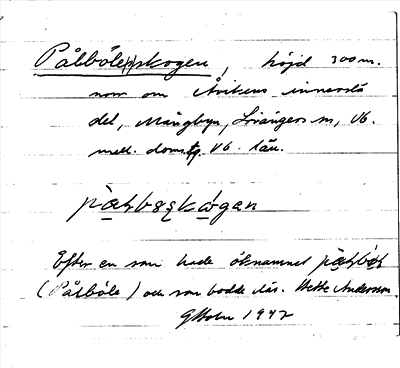 Pålböle(n)skogen, höjd 300 m.
norr om Åvikens innersta
del, Mångbyn, Lövångers sn, Vb.
mell. domsg. Vb. län.
Efter en som hade öknamnet
(Pålböle) och som bodde där. Hette Andersson
G Holm 1942